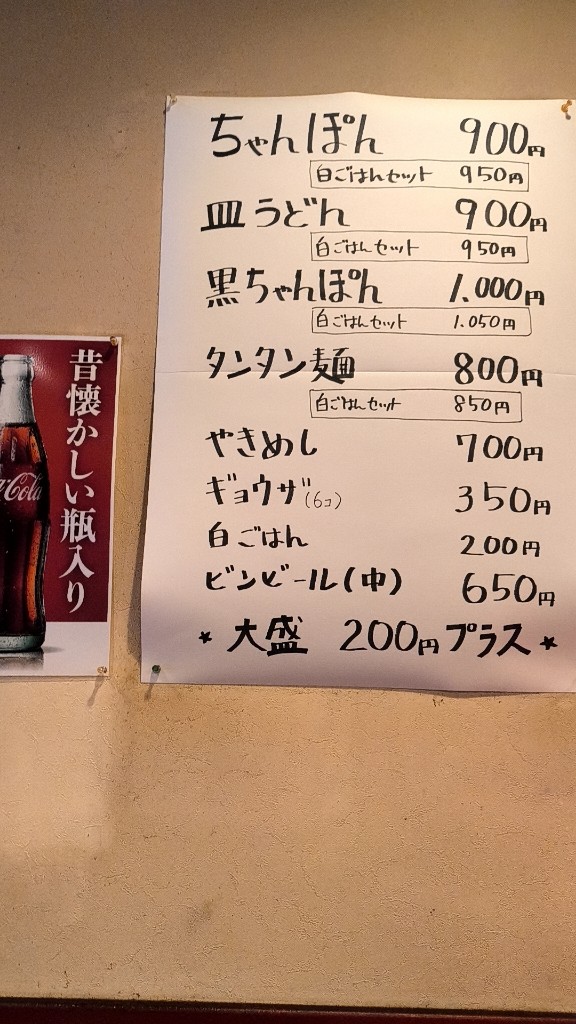 ちゃんぽん 900円
白ごはんセット 950円
皿うどん 900円
白ごはんセット 950円
黒ちゃんぽん 1.000円
白ごはんセット 1.050円
タンタン麺 800円
白ごはんセット 850円
やきめし 700円
ギョウザ(6コ) 350円
白ごはん 200円
ビンビール(中) 650円
*大盛 200円プラス*
昔懐かしい瓶入り
Cola